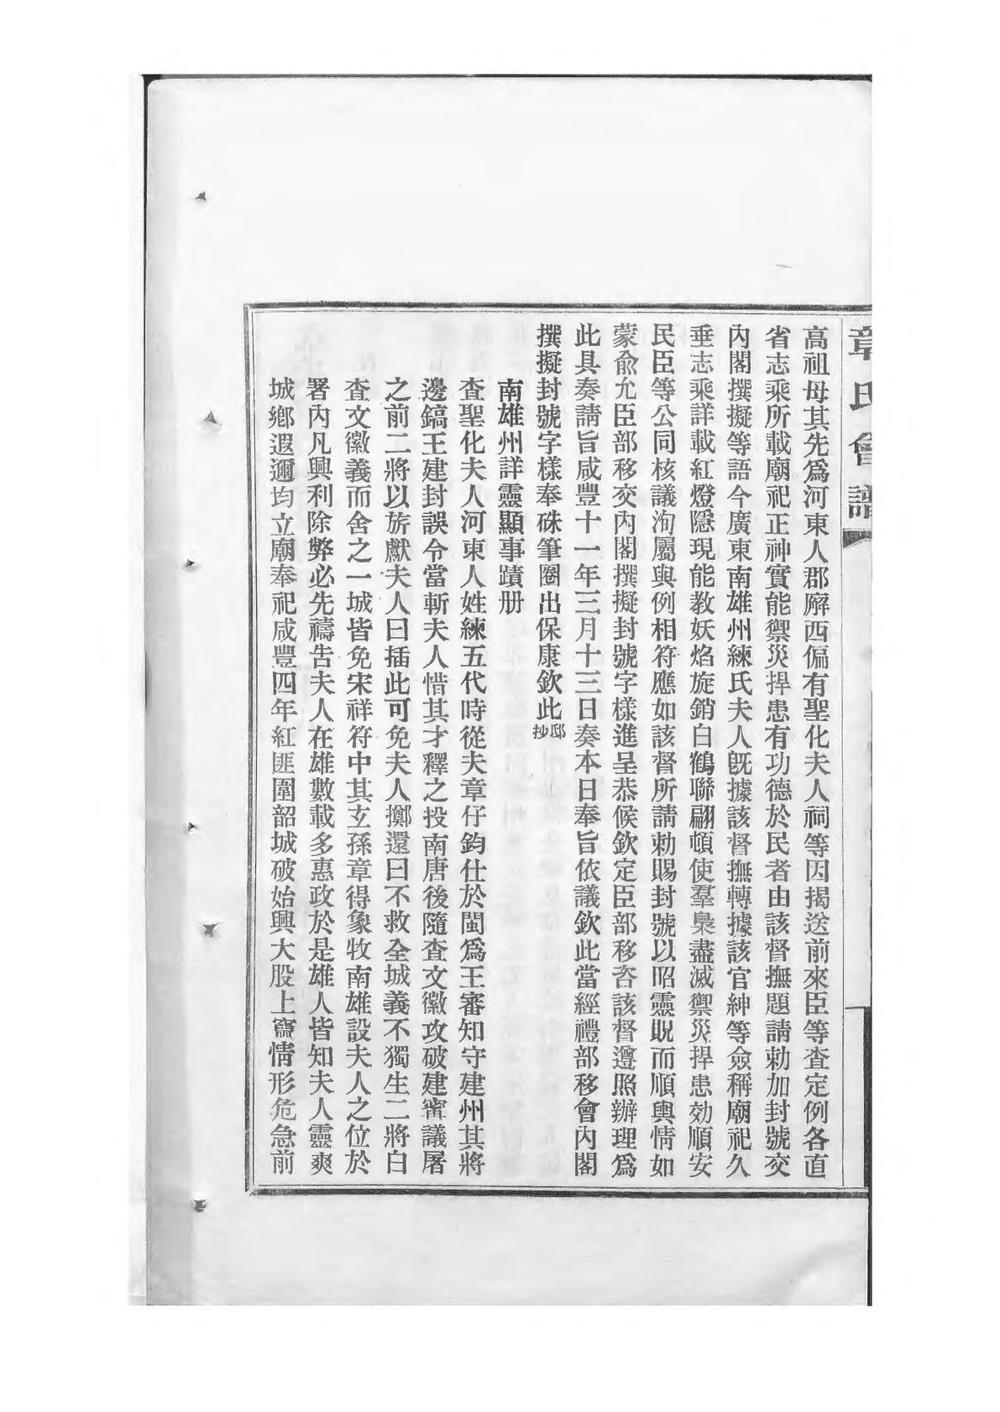 章氏會譜
高祖母其先爲河東人郡廨西偏有聖化夫人祠等因揭送前來臣等査定例各直
省志乘所載廟祀正神實能禦災捍患有功德於民者由該督撫題請勅加封號交
內閣撰擬等語今廣東南雄州練氏夫人旣據該督撫轉據該官紳等僉稱廟祀久
垂志乘詳載紅燈隱現能敎妖焰旋銷白鶴聯翩頓使羣梟盡滅禦災捍患効順安
民臣等公同核議洵屬與例相符應如該督所請勅賜封號以昭靈貺而順輿情如
蒙兪允臣部移交內閣撰擬封號字樣進呈恭候欽定臣部移咨該督遵照辦理爲
此具奏請旨咸豐十一年三月十三日奏本日奉旨依議欽此當經禮部移會內閣
撰擬封號字樣奉硃筆圈出保康欽此邸抄
南雄州詳靈顯事蹟册
査聖化夫人河東人姓練五代時從夫章仔鈞仕於閩爲王審知守建州其將
邊鎬王建封誤令當斬夫人惜其才釋之投南唐後隨査文徽攻破建寗議屠
之前二將以旂獻夫人曰插此可免夫人擲還曰不救全城義不獨生二將白
査文徽義而舍之一城皆免宋祥符中其玄孫章得象牧南雄設夫人之位於
署內凡興利除弊必先禱吿夫人在雄數載多惠政於是雄人皆知夫人靈爽
城鄕遐邇均立廟奉祀咸豐四年紅匪圍韶城破始興大股上竄情形危急前